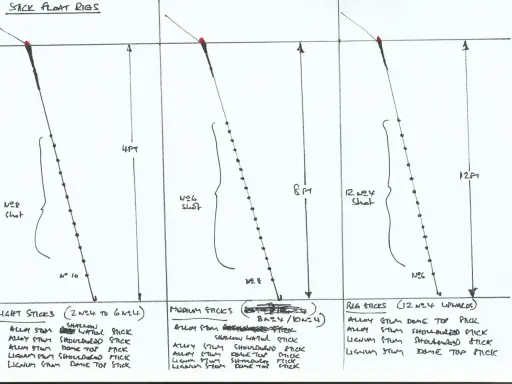 STICK FLOAT RIGS
4FT
Nº8
Shot
Nº 10
8FT
Nº6
Shot
Nº 8
12FT
12 Nº4
Shot
Nº6
LIGHT STICKS (2 Nº4 TO 6 Nº4)
SHALLOW
ALLOY STEM WATER STICK
ALLOY STEM SHOULDERED STICK
ALLOY STEM DOME TOP STICK
LIGNUM STEM SHOULDERED STICK
LIGNUM STEM DOME TOP STICK
MEDIUM STICKS
8 Nº4 / 10 Nº4)
ALLOY STEM
SHALLOW WATER STICK
ALLOY STEM SHOULDERED STICK
ALLOY STEM DOME TOP STICK
LIGNUM STEM SHOULDERED STICK
LIGNUM STEM DOME TOP STICK
BIG STICKS (12 Nº4 UPWARDS)
ALLOY STEM DOME TOP STICK
ALLOY STEM SHOULDERED STICK
LIGNUM STEM SHOULDERED STICK
LIGNUM STEM DOME TOP STICK